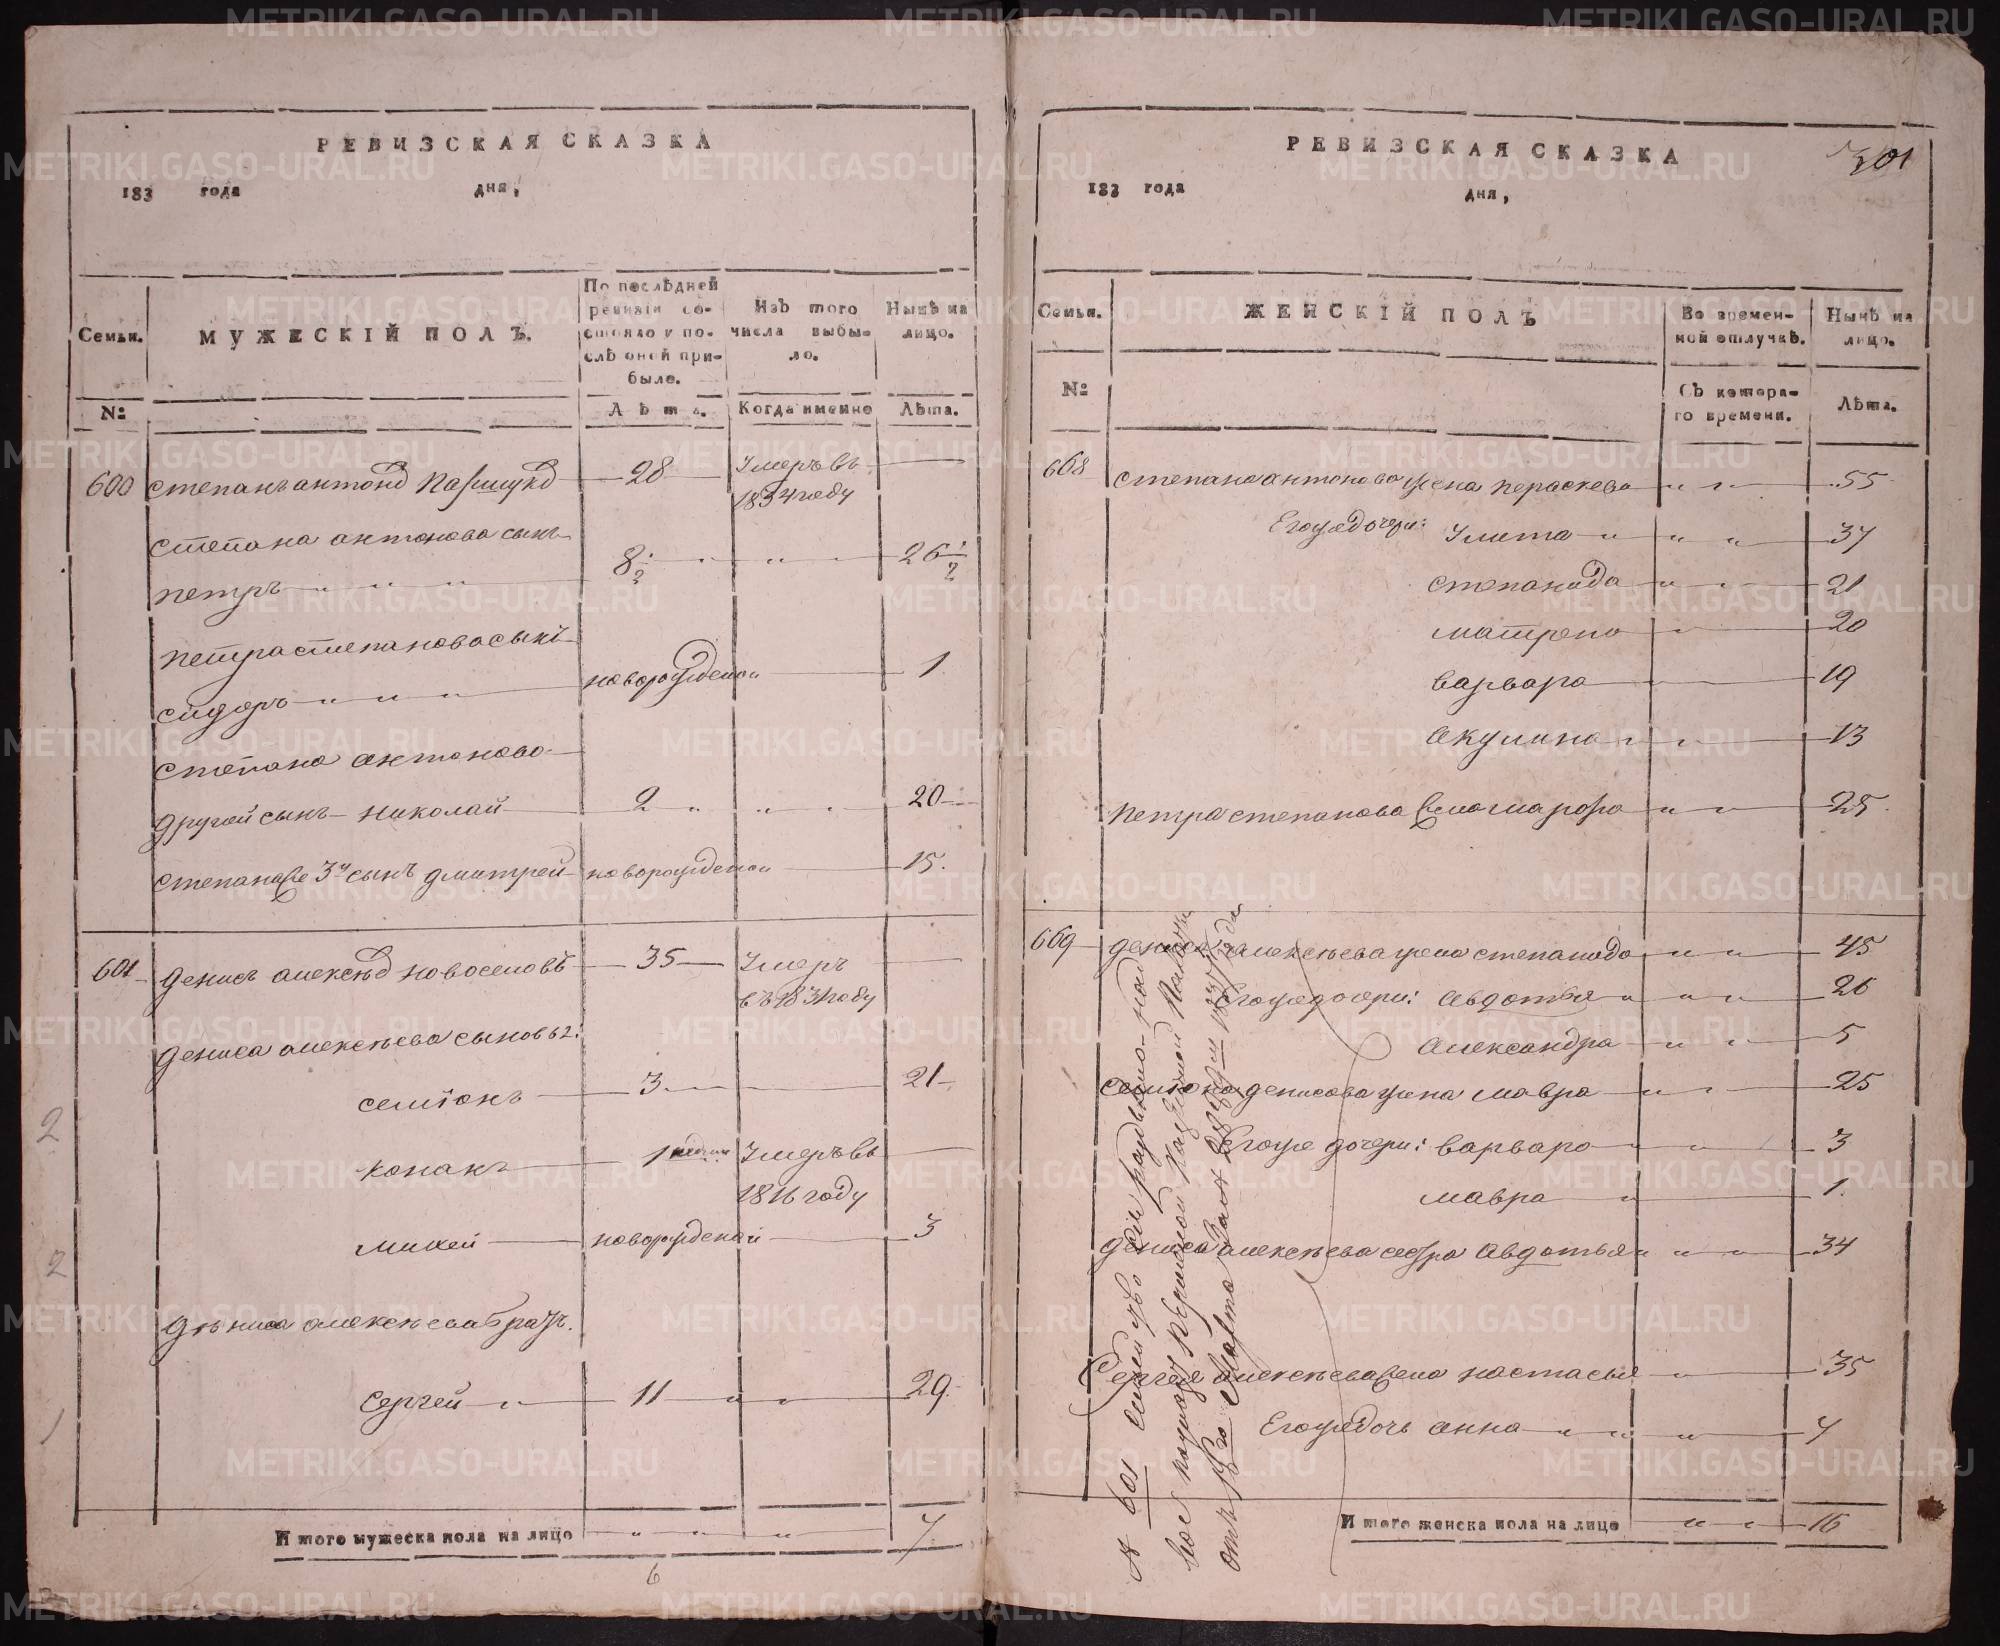 РЕВИЗСКАЯ СКАЗКА
183 года дня,
Семьи.
МУЖЕСКІЙ ПОЛЪ.
По послѣдней ревизіи состояло и послѣ оной прибыло.
Изъ того числа выбыло.
Нынѣ на лицо.
№
Лѣта.
Когда именно
Лѣта.
600 степанъ антоновъ 28 Умеръ въ
1834 году
степана антонова сынъ
петръ 8 1/2 26 1/2
петра степанова сынъ
сидоръ новорожденой 1
степана антонова
другой сынъ николай 2 20
степана же 3й сынъ дмитрей новорожденой 15.
601 денисъ алексѣевъ новоселовъ 35 Умеръ
въ 1831 году
дениса алексѣева сыновья:
семіонъ 3 21
конанъ 1 Умеръ въ
1816 году
михей новорожденой 3
дѣниса алексѣева братъ
сергей 11 29
Итого мужеска пола на лицо 7
6
2
2
1
РЕВИЗСКАЯ СКАЗКА
201
183 года дня,
Семьи.
ЖЕНСКІЙ ПОЛЪ
Во временной отлучкѣ.
Нынѣ на лицо.
№
Съ которого времени.
Лѣта.
668 степана антонова жена пераскева 55
Его же дочери: Улита 37
степанида 21
матрена 20
варвара 19
акулина 13
петра степанова жена марфа 25
669 дениса алексѣева жена степанида 45
Его же дочери: Авдотья 26
Александра 5
семіона денисова жена мавра 25
Его же дочери: варвара 3
мавра 1.
дениса алексѣева сестра Авдотья 34
Сергея алексѣева жена настасья 35
Его же дочь анна 7
Итого женска пола на лице 16
№ 601 семейство сіе
METRIKI.GASO-URAL.RU